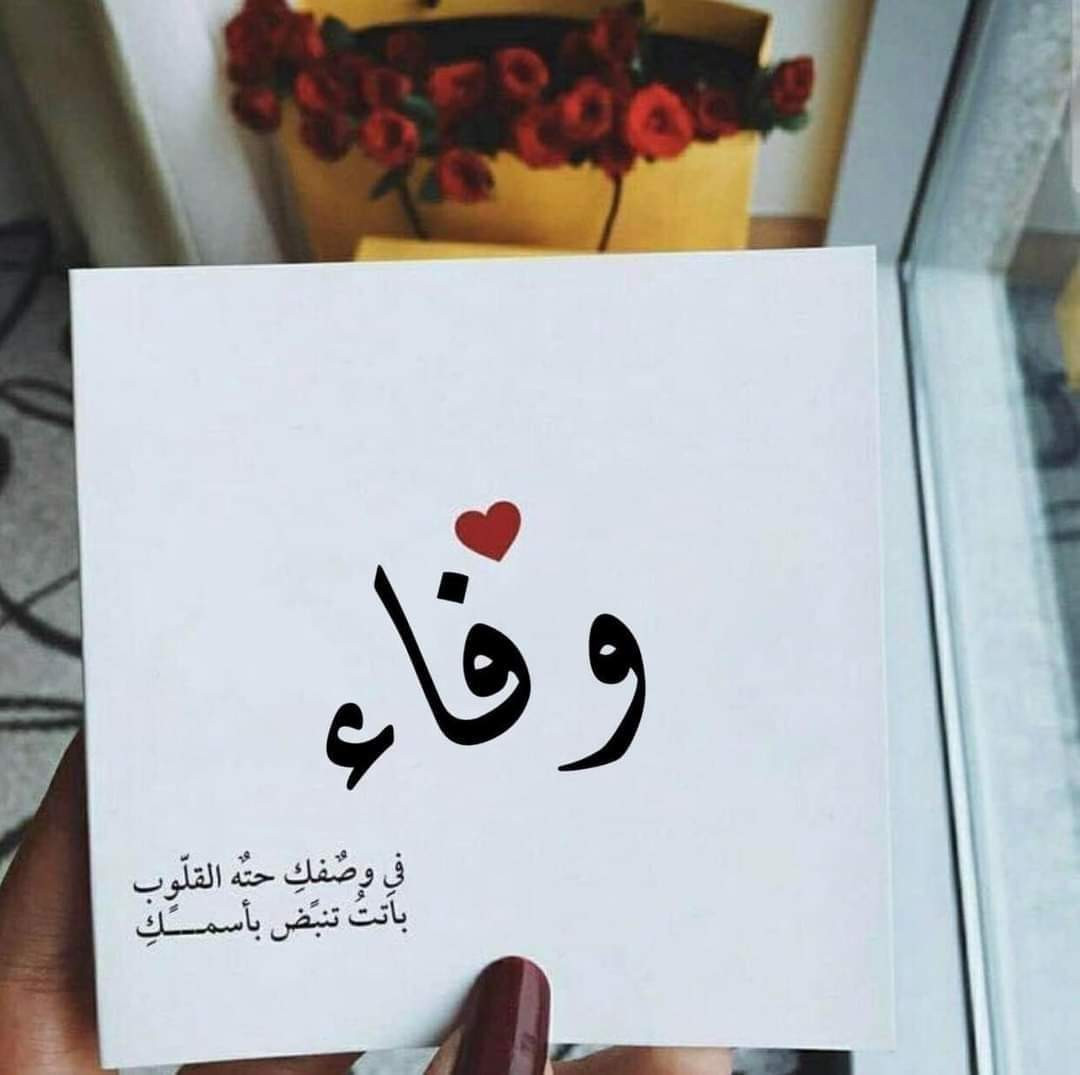 وفاء
في وصٌفكِ حتٌه القلّوب
باتتُ تنبًض بأسمــــكًِ